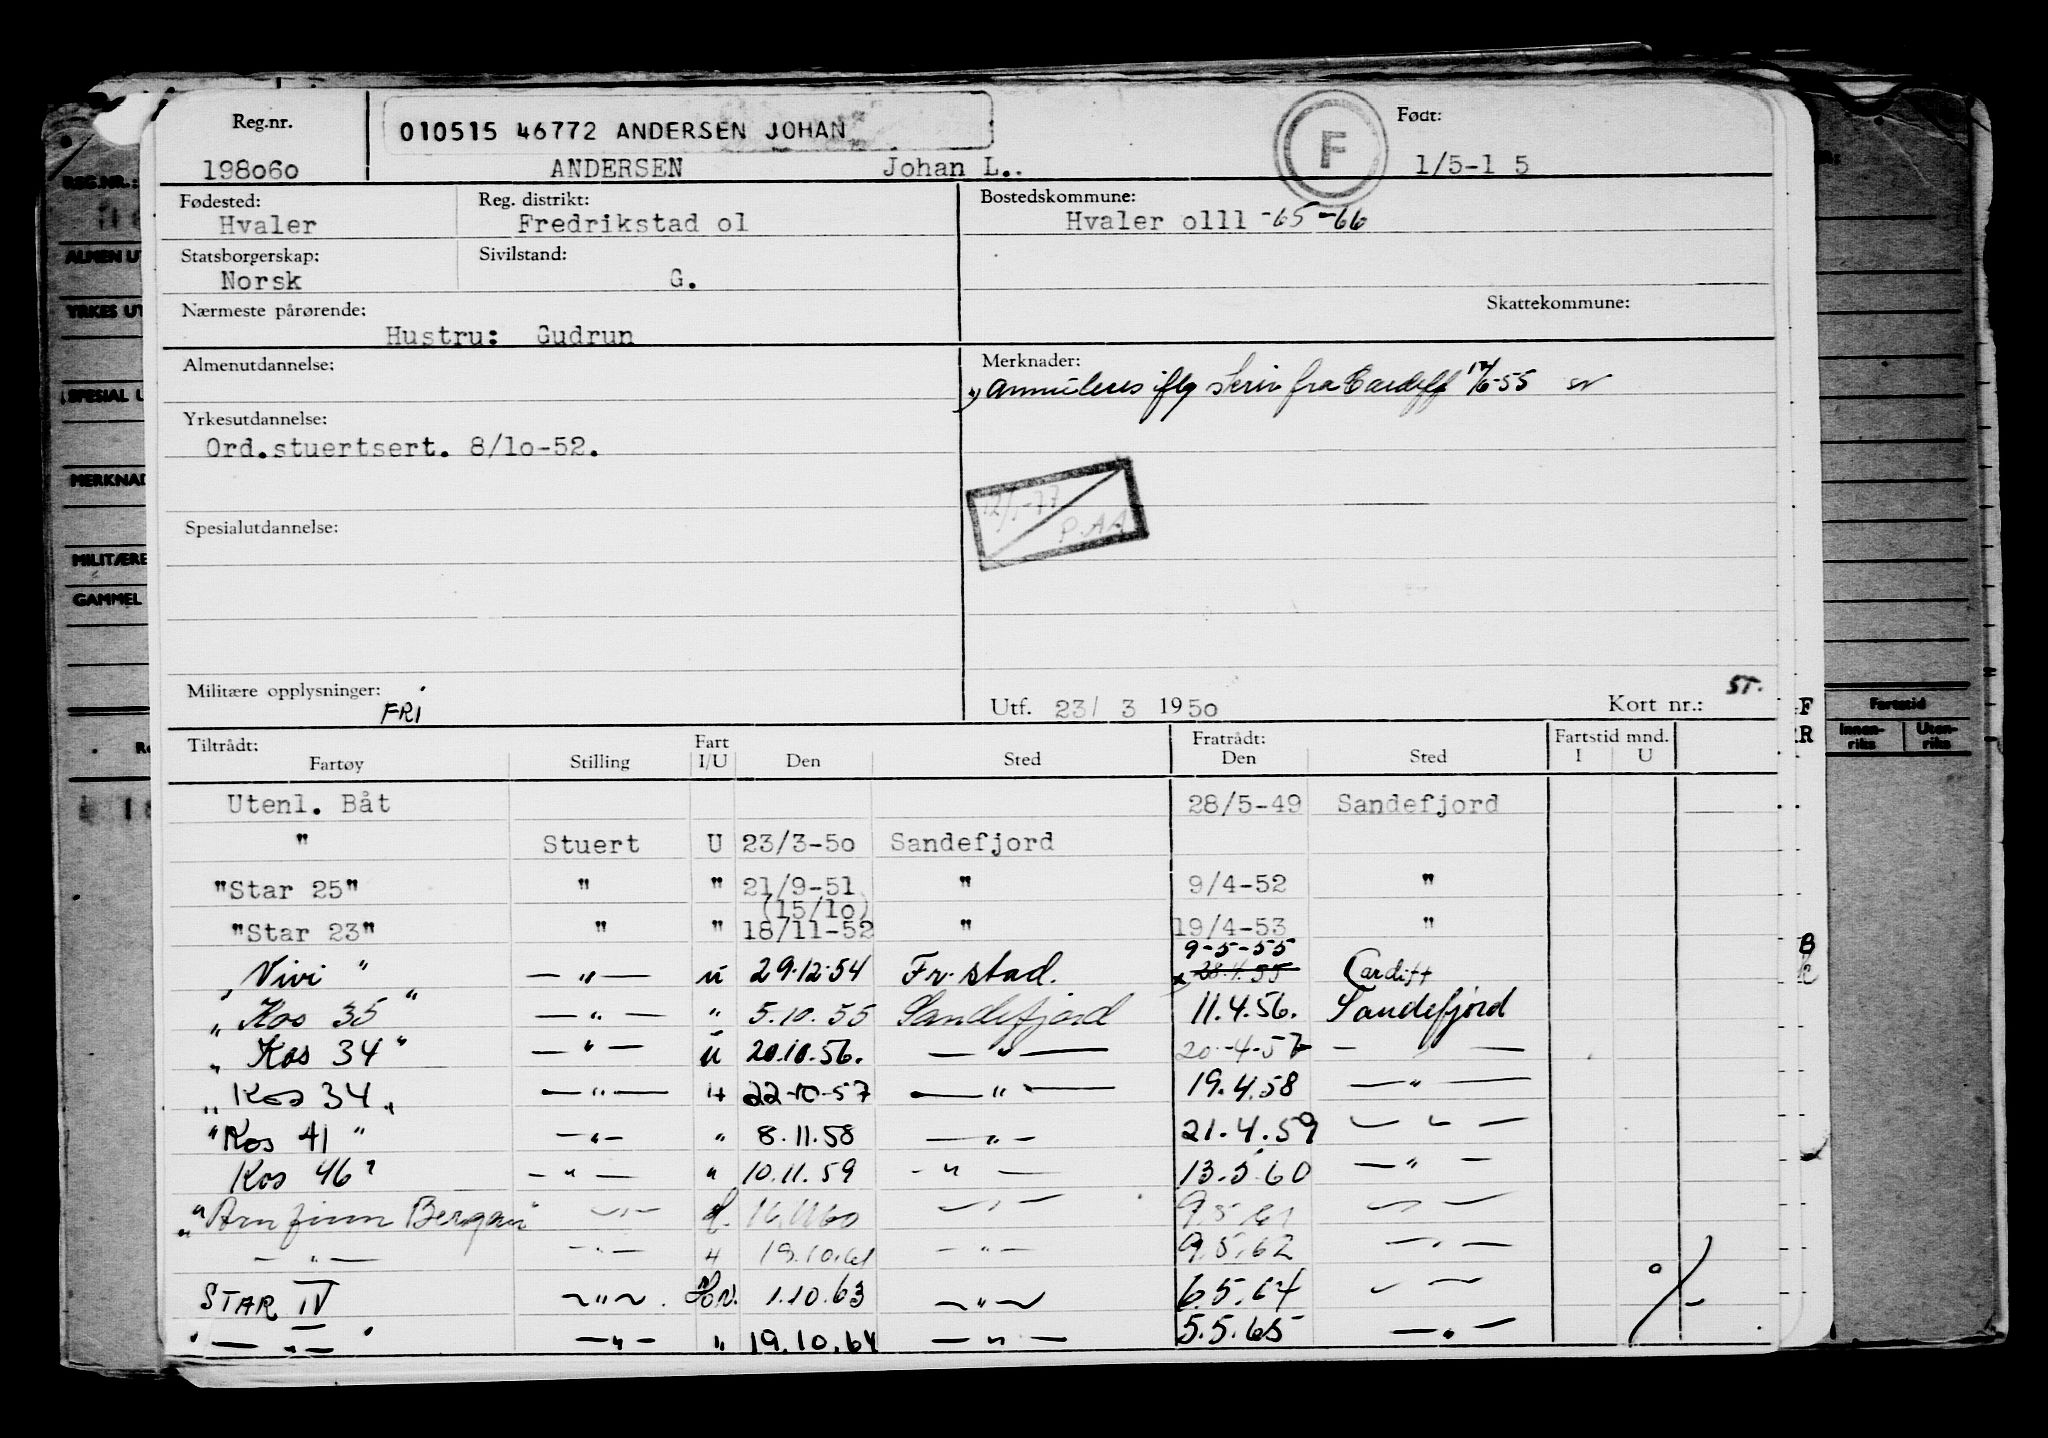 Reg.nr. 010515 46772 ANDERSEN JOHAN F Født:
198060 ANDERSEN Johan L. 1/5-1 5
Fødested: Reg. distrikt: Bostedskommune:
Hvaler Fredrikstad o1 Hvaler o111 -65-66
Statsborgerskap: Sivilstand:
Norsk G.
Nærmeste pårørende: Skattekommune:
Hustru: Gudrun
Almenutdannelse: Merknader:
annuleres iflg skriv fra Cardiff 17/6-55
Yrkesutdannelse:
Ord.stuertsert. 8/1o-52.
12/1-77
P.AA
Spesialutdannelse:
Militære opplysninger: FRI Utf. 23/ 3 1950 Kort nr.: ST.
Tiltrådt: Fart Fratrådt: Fartstid mnd.
Fartøy Stilling I/U Den Sted Den Sted I U
Utenl. Båt 28/5-49 Sandefjord
" Stuert U 23/3-5o Sandefjord
"Star 25" " " 21/9-51 " 9/4-52 "
(15/1o)
"Star 23" " " 18/11-52 " 19/4-53 "
9-5-55
"Vivi" — " — u 29.12.54 Fr.stad. x 28.4.55 Cardiff
"Kos 35" — " — " 5.10.55 Sandefjord 11.4.56. Sandefjord
"Kos 34" — " — u 20.10.56. — " — 20-4-57 — " —
"Kos 34" — " — 22-10-57 — " — 19.4.58 — " —
"Kos 41" — " — " 8.11.58 — " — 21.4.59 — " —
Kos 46" — " — " 10.11.59 — " — 13.5.60 — " —
"Arnfinn Bergan" — " — 16.11.60 — " — 9.5.61 — " —
— " — — " — 19.10.61 — " — 9.5.62 — " —
STAR IV — " — 1.10.63 — " — 6.5.64 — " —
" — " — " — " — " 19.10.64 — " — 5.5.65 — " —
REG.NR.:
ALMEN UT
YRKES UT
SPESIAL U
MERKNAD
MILITÆRE
GAMMEL
Fartstid
Innen-riks Uten-riks